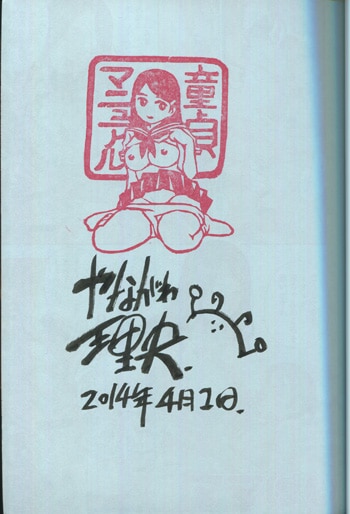 童貞
マニュアル
やながわ
理央.
2014年4月1日.